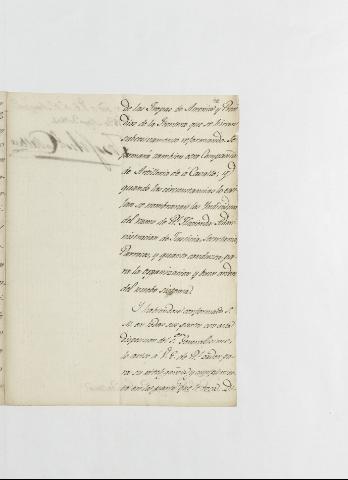 de las Tropas de America y Presi
dios de la Frontera que se hiciese
subcesivamente reformando se
formaria tambien otra Compañia
de Artilleria de à Caballo; y
quando las circunstancias lo exi
lan se nombraran los Individuos
del ramo de Rl. Hacienda Admi
nistracion de Justicia, Secretaria
Parroco, y quanto conduzca pa
ra la organizacion y buen orden
del nuebo sistema.
Y habiendose conformado S.
M. en todas sus partes con esta
disposicion del Sr. Generalisimo
lo aviso à V. E. de Rl. orden pa
ra su inteligencia y cumplimien
to en la parte que le toca. Di